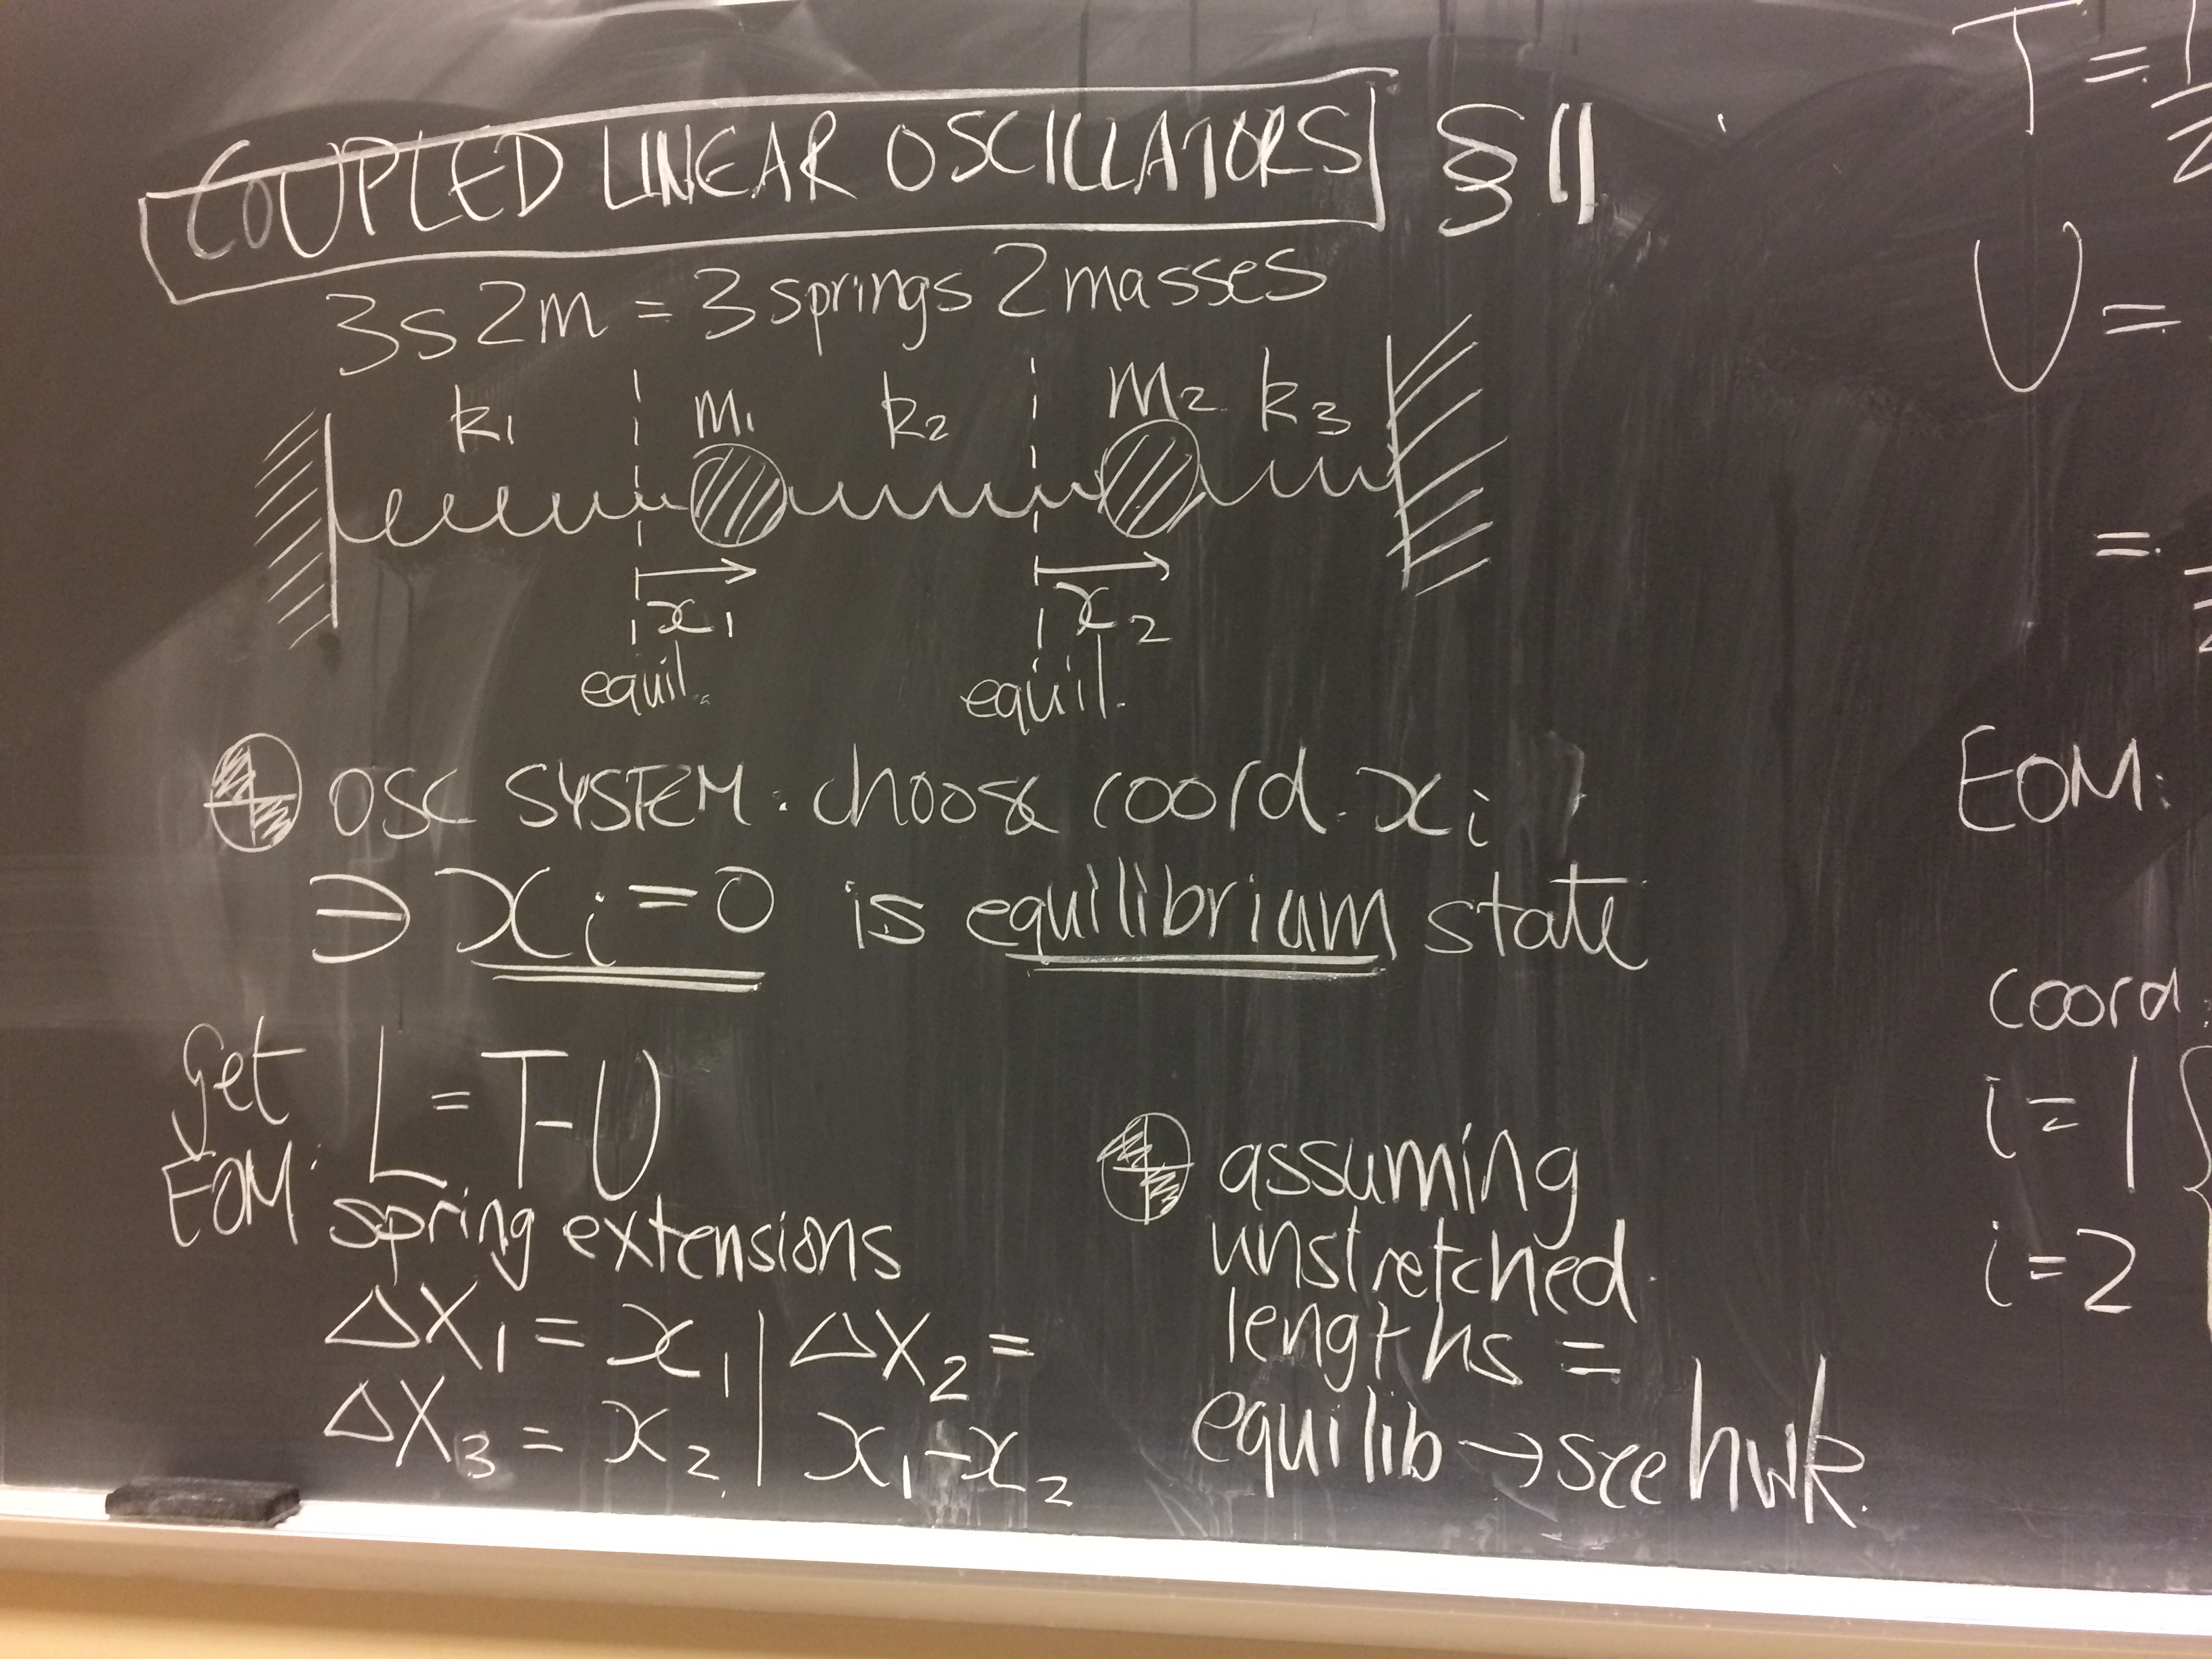 COUPLED LINEAR OSCILLATORS § 11
3s2m = 3 springs 2 masses
k₁ m₁ k₂ m₂ k₃
x₁ x₂
equil. equil.
OSC SYSTEM. choose coord. xᵢ
∋ xᵢ = 0 is equilibrium state
get EOM: L = T-U
spring extensions
Δx₁ = x₁ | Δx₂ =
Δx₃ = x₂ | x₁-x₂
assuming
unstretched
lengths =
equilib → see hwk.
T = 1/2
U =
=
EOM:
coord
i = 1 {
i = 2